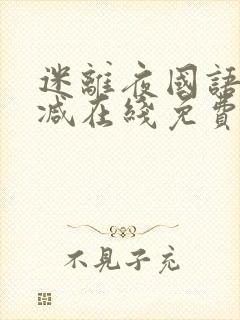 迷離夜國語
减在綫免費
不見子充